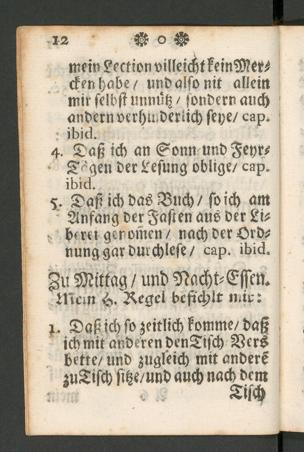 12
mein Lection villeicht kein Mer-
cken habe / und also nit allein
mir selbst unnütz / sondern auch
andern verhinderlich seye / cap.
ibid.
4. Daß ich an Sonn und Feyr-
Tägen der Lesung oblige / cap.
ibid.
5. Daß ich das Buch / so ich am
Anfang der Fasten aus der Li-
berei genom̃en / nach der Ord-
nung gar durchlese / cap. ibid.
Zu Mittag / und Nacht-Essen.
Mein H. Regel befihlt mir:
1. Daß ich so zeitlich komme / daß
ich mit anderen den Tisch-Vers
bette / und zugleich mit anderẽ
zu Tisch sitze / und auch nach dem
Tisch